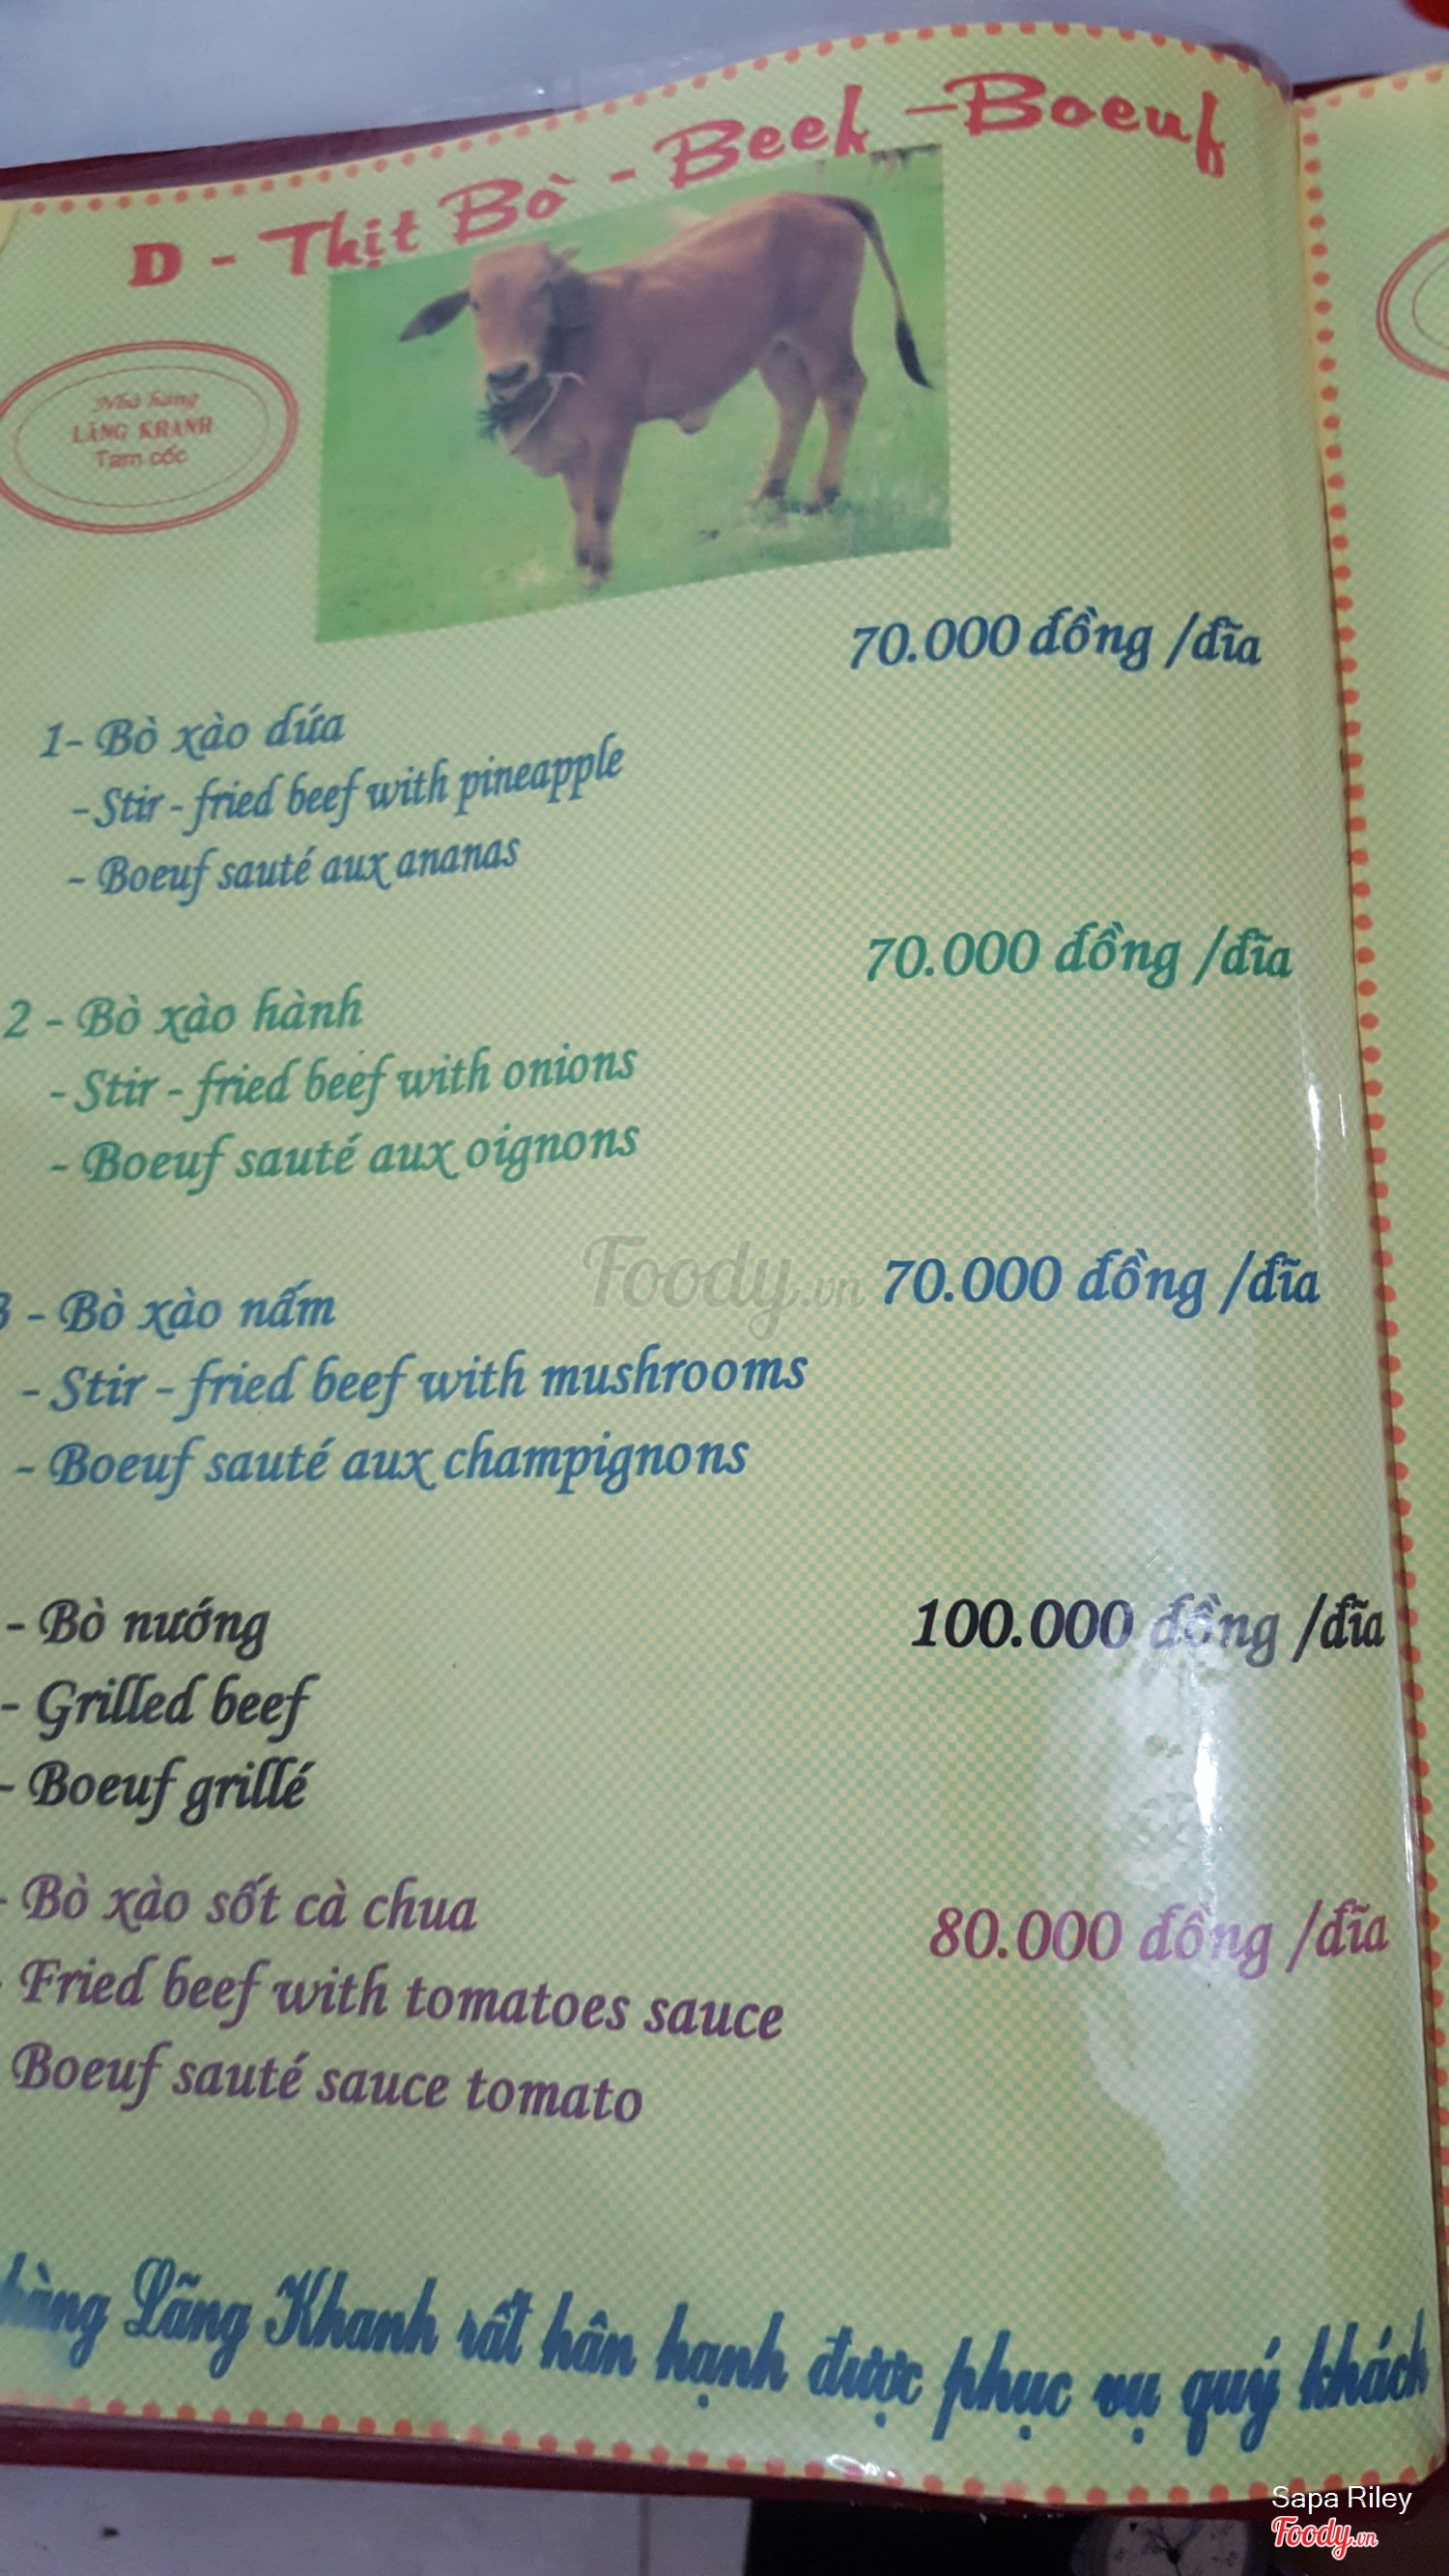 D - Thịt Bò - Beef - Boeuf
Nhà hàng
LÃNG KHANH
Tam cốc
70.000 đồng /đĩa
1- Bò xào dứa
- Stir - fried beef with pineapple
- Boeuf sauté aux ananas
70.000 đồng /đĩa
2 - Bò xào hành
- Stir - fried beef with onions
- Boeuf sauté aux oignons
Foody.vn
70.000 đồng /đĩa
3 - Bò xào nấm
- Stir - fried beef with mushrooms
- Boeuf sauté aux champignons
- Bò nướng
100.000 đồng /đĩa
- Grilled beef
- Boeuf grillé
- Bò xào sốt cà chua
80.000 đồng /đĩa
- Fried beef with tomatoes sauce
Boeuf sauté sauce tomato
hàng Lãng Khanh rất hân hạnh được phục vụ quý khách
Sapa Riley
Foody.vn